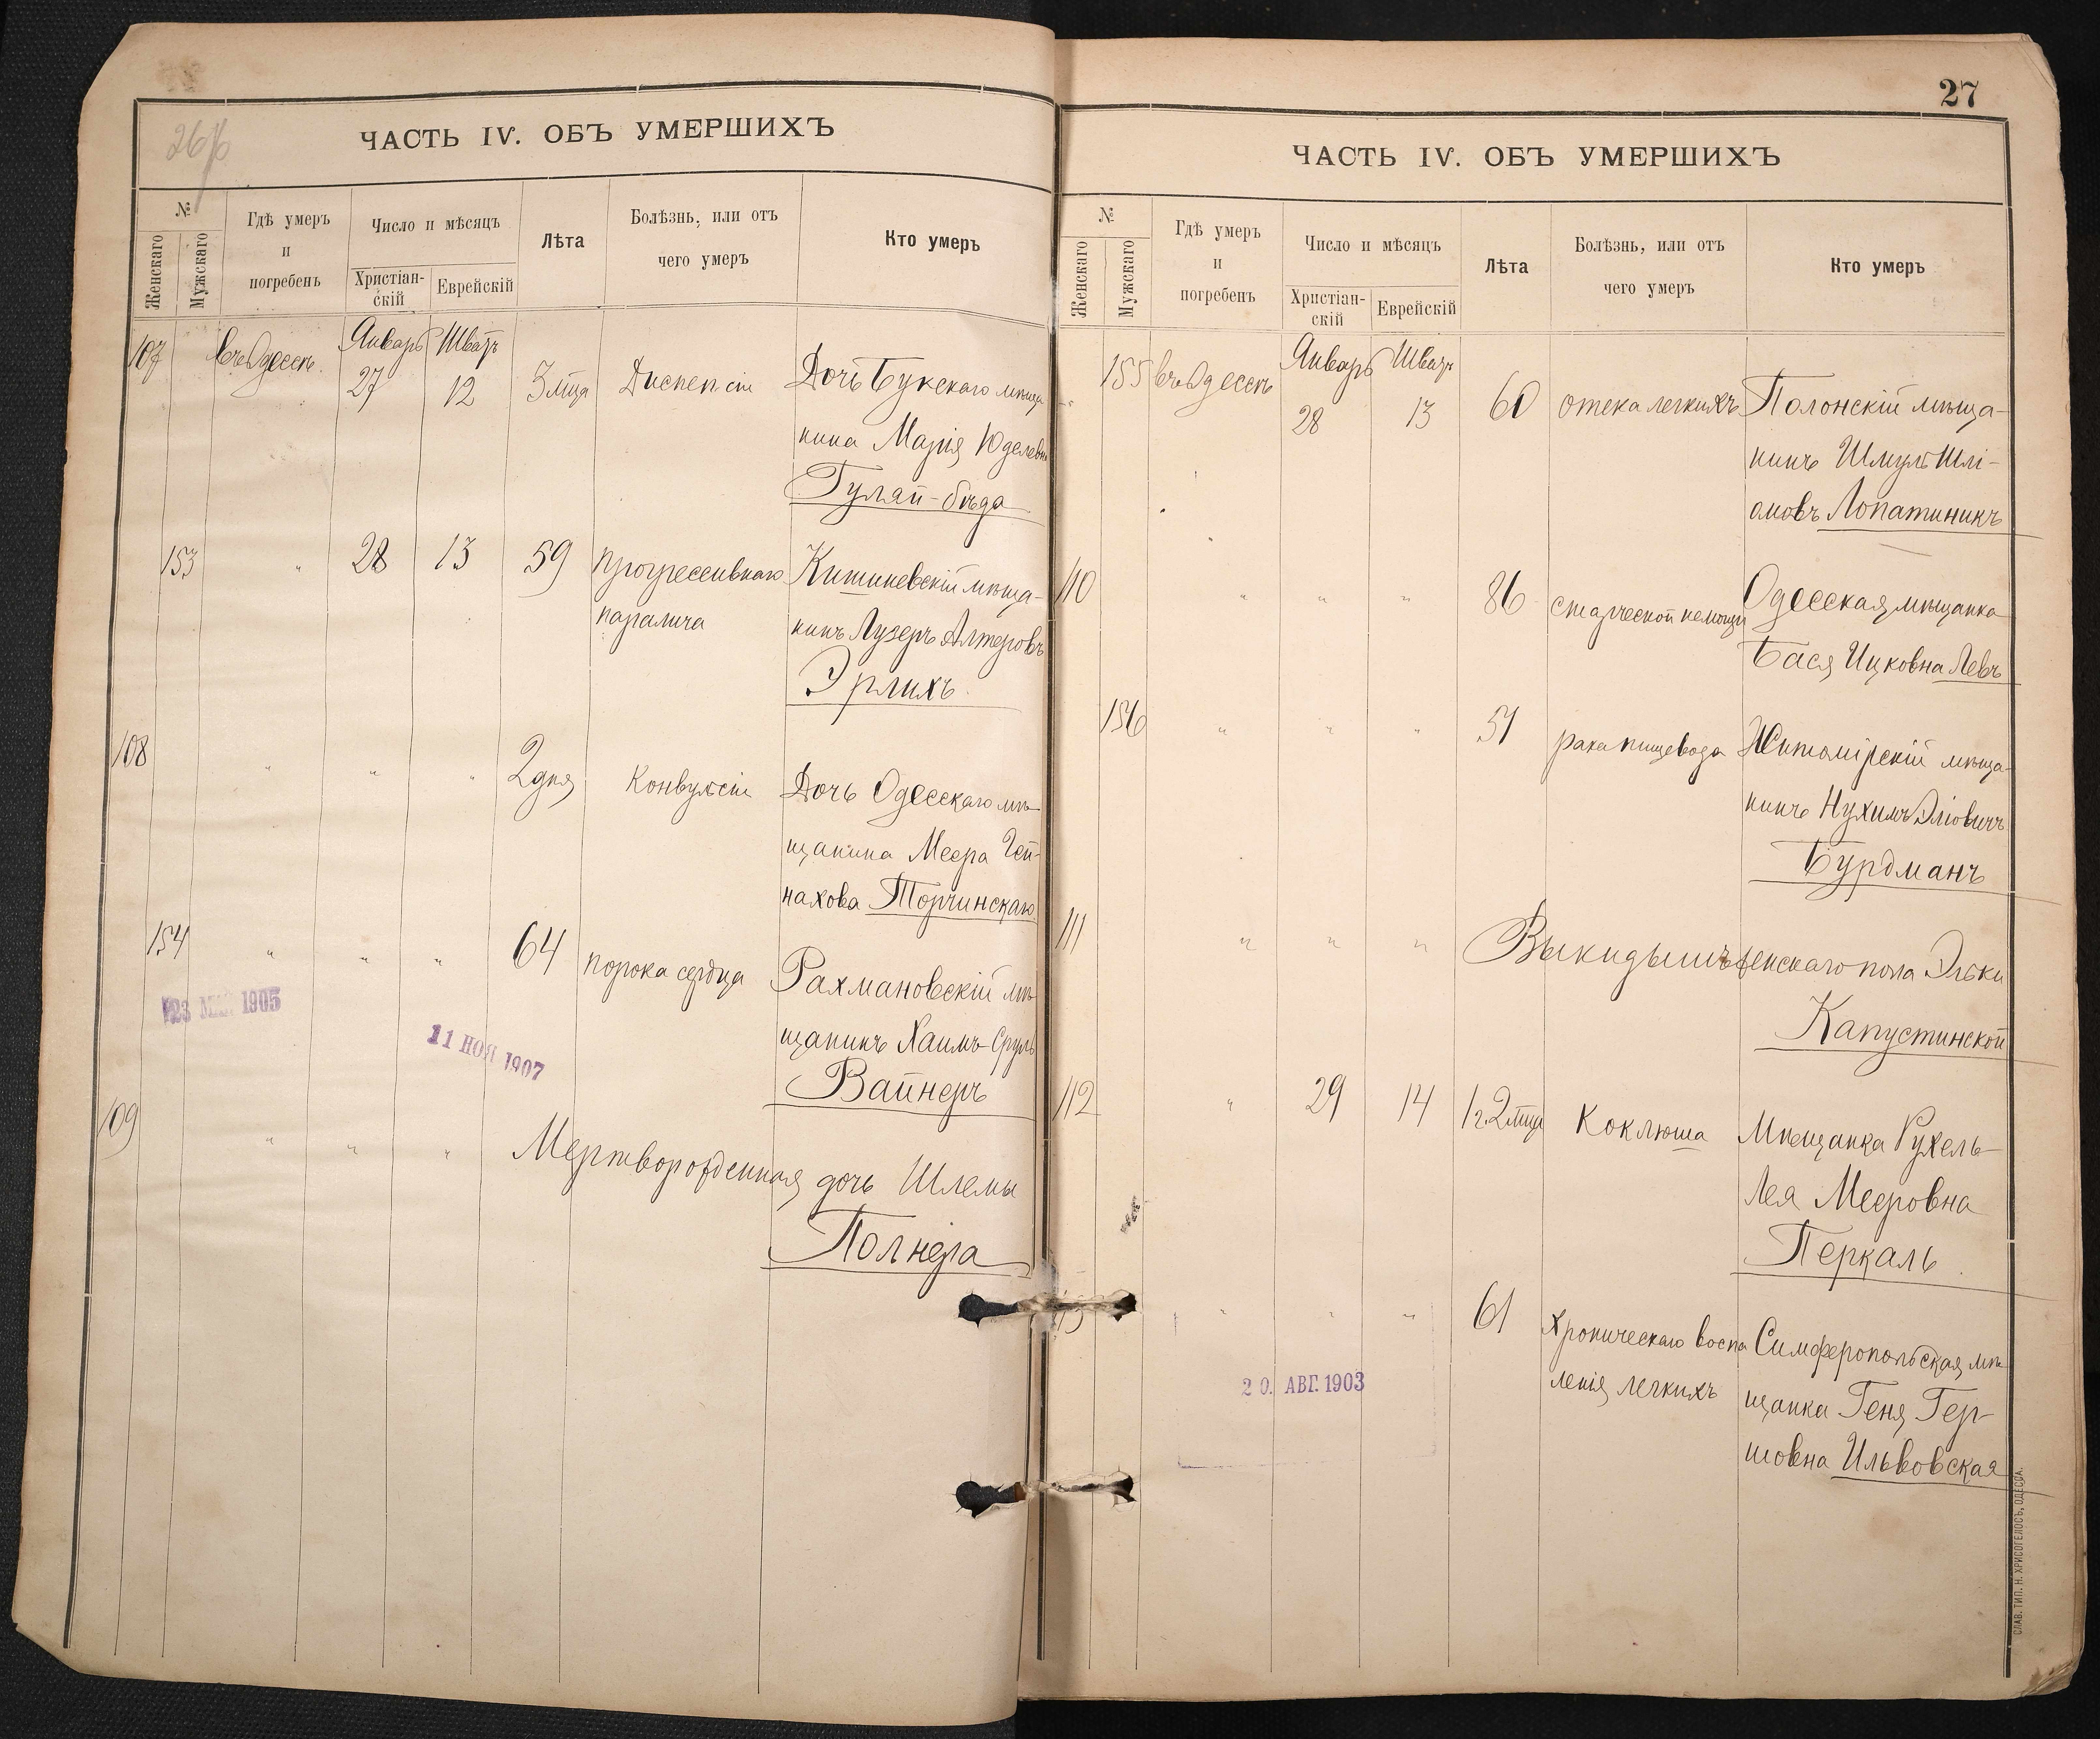 ЧАСТЬ IV. ОБЪ УМЕРШИХЪ
№
Женскаго
Мужскаго
Гдѣ умеръ
и
погребенъ
Число и мѣсяцъ
Христіан-
скій
Еврейскій
Лѣта
Болѣзнь, или отъ
чего умеръ
Кто умеръ
107 въ Одессѣ Январь 27 Шватъ 12 3 мца Диспепсіи Дочь Букскаго мѣща
нина Марія Юделевна
Гуляй-бѣда
153 " 28 13 59 прогрессивнаго Кишиневскій мѣща-
паралича нинъ Лузеръ Алтеровъ
Эрлихъ.
108 " " " 2 дня Конвульсіи Дочь Одесскаго мѣ-
щанина Меера Гей-
нахова Торчинскаго
154 " " " 64 порока сердца Рахмановскій мѣ-
щанинъ Хаимъ-Сруль
Вайнеръ
23 1905
11 НОЯ 1907
109 " " " Мертворожденная дочь Шлемы
Полнера
27
ЧАСТЬ IV. ОБЪ УМЕРШИХЪ
№
Женскаго
Мужскаго
Гдѣ умеръ
и
погребенъ
Число и мѣсяцъ
Христіан-
скій
Еврейскій
Лѣта
Болѣзнь, или отъ
чего умеръ
Кто умеръ
155 въ Одессѣ Январь 28 Шватъ 13 60 отека легкихъ Полонскій мѣща-
нинъ Шмуль Шлі-
омовъ Лопатиникъ
110 " " " 86 старческой немощи Одесская мѣщанка
Бася Ицковна Левъ
156 " " " 51 рака пищевода Житомірскій мѣща-
нинъ Нухимъ Эліовичъ
Бурдманъ
111 " " " Выкидышъ женскаго пола Эльки
Капустинской
112 " 29 14 1 г. 2 мца Коклюша Мѣщанка Рухель-
Лея Мееровна
Перкаль
" " " 61 Хроническаго воспа Симферопольская мѣ
ленія легкихъ щанка Геня Гер-
шовна Ильвовская
20. АВГ. 1903
СЛАВ. ТИП. Н. ХРИСОГЕЛОСЪ, ОДЕССА.